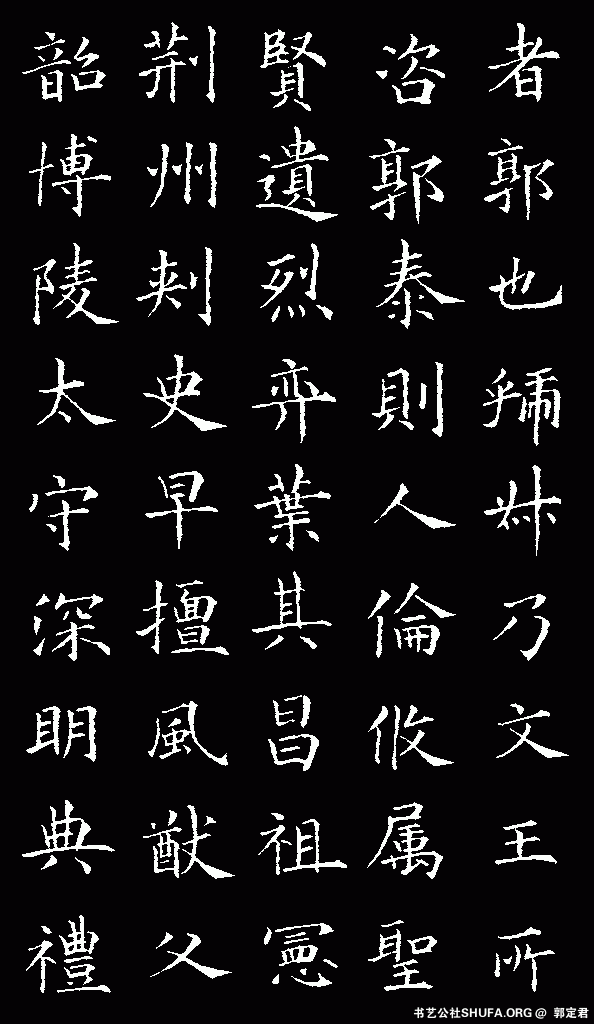 者郭也虢叔乃文王所
咨郭泰則人倫攸属聖
賢遺烈弈葉其昌祖憲
荆州刾史早擅風猷父
韶博陵太守深眀典禮
书艺公社SHUFA.ORG @ 郭定君